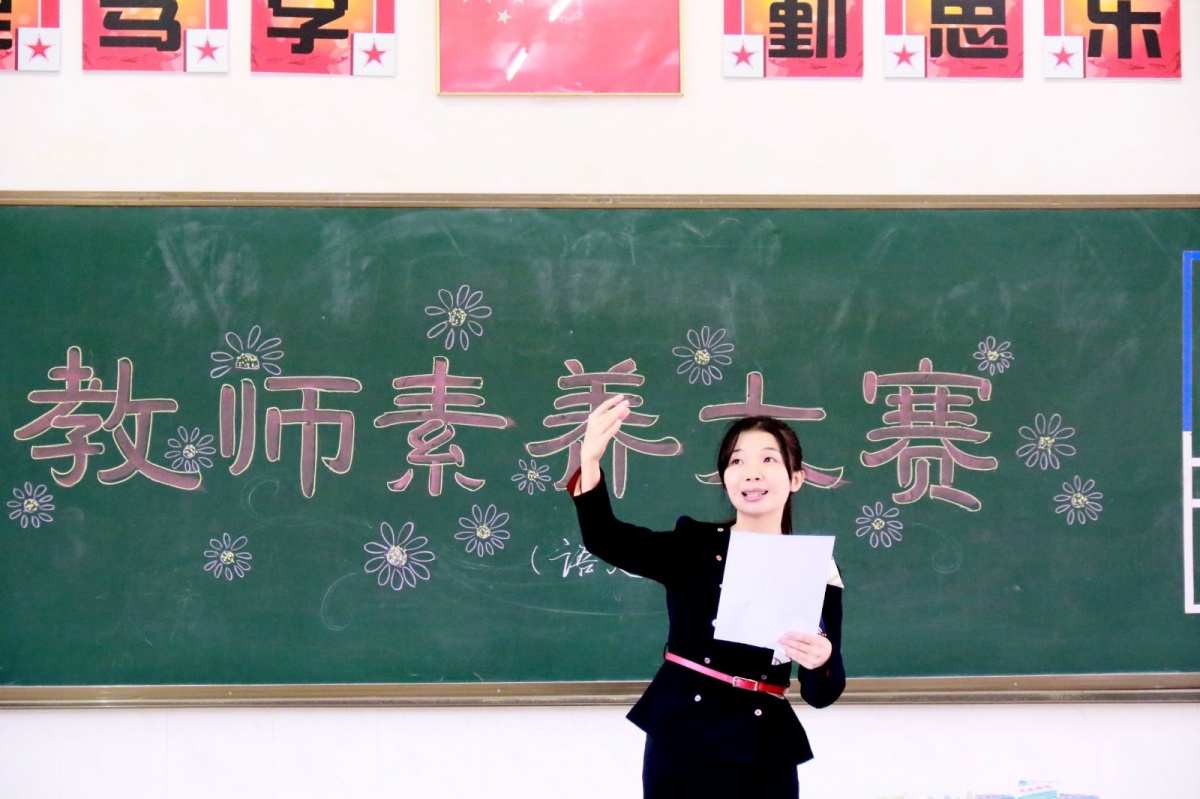 笃学 勤思乐
教师素养大赛
(语